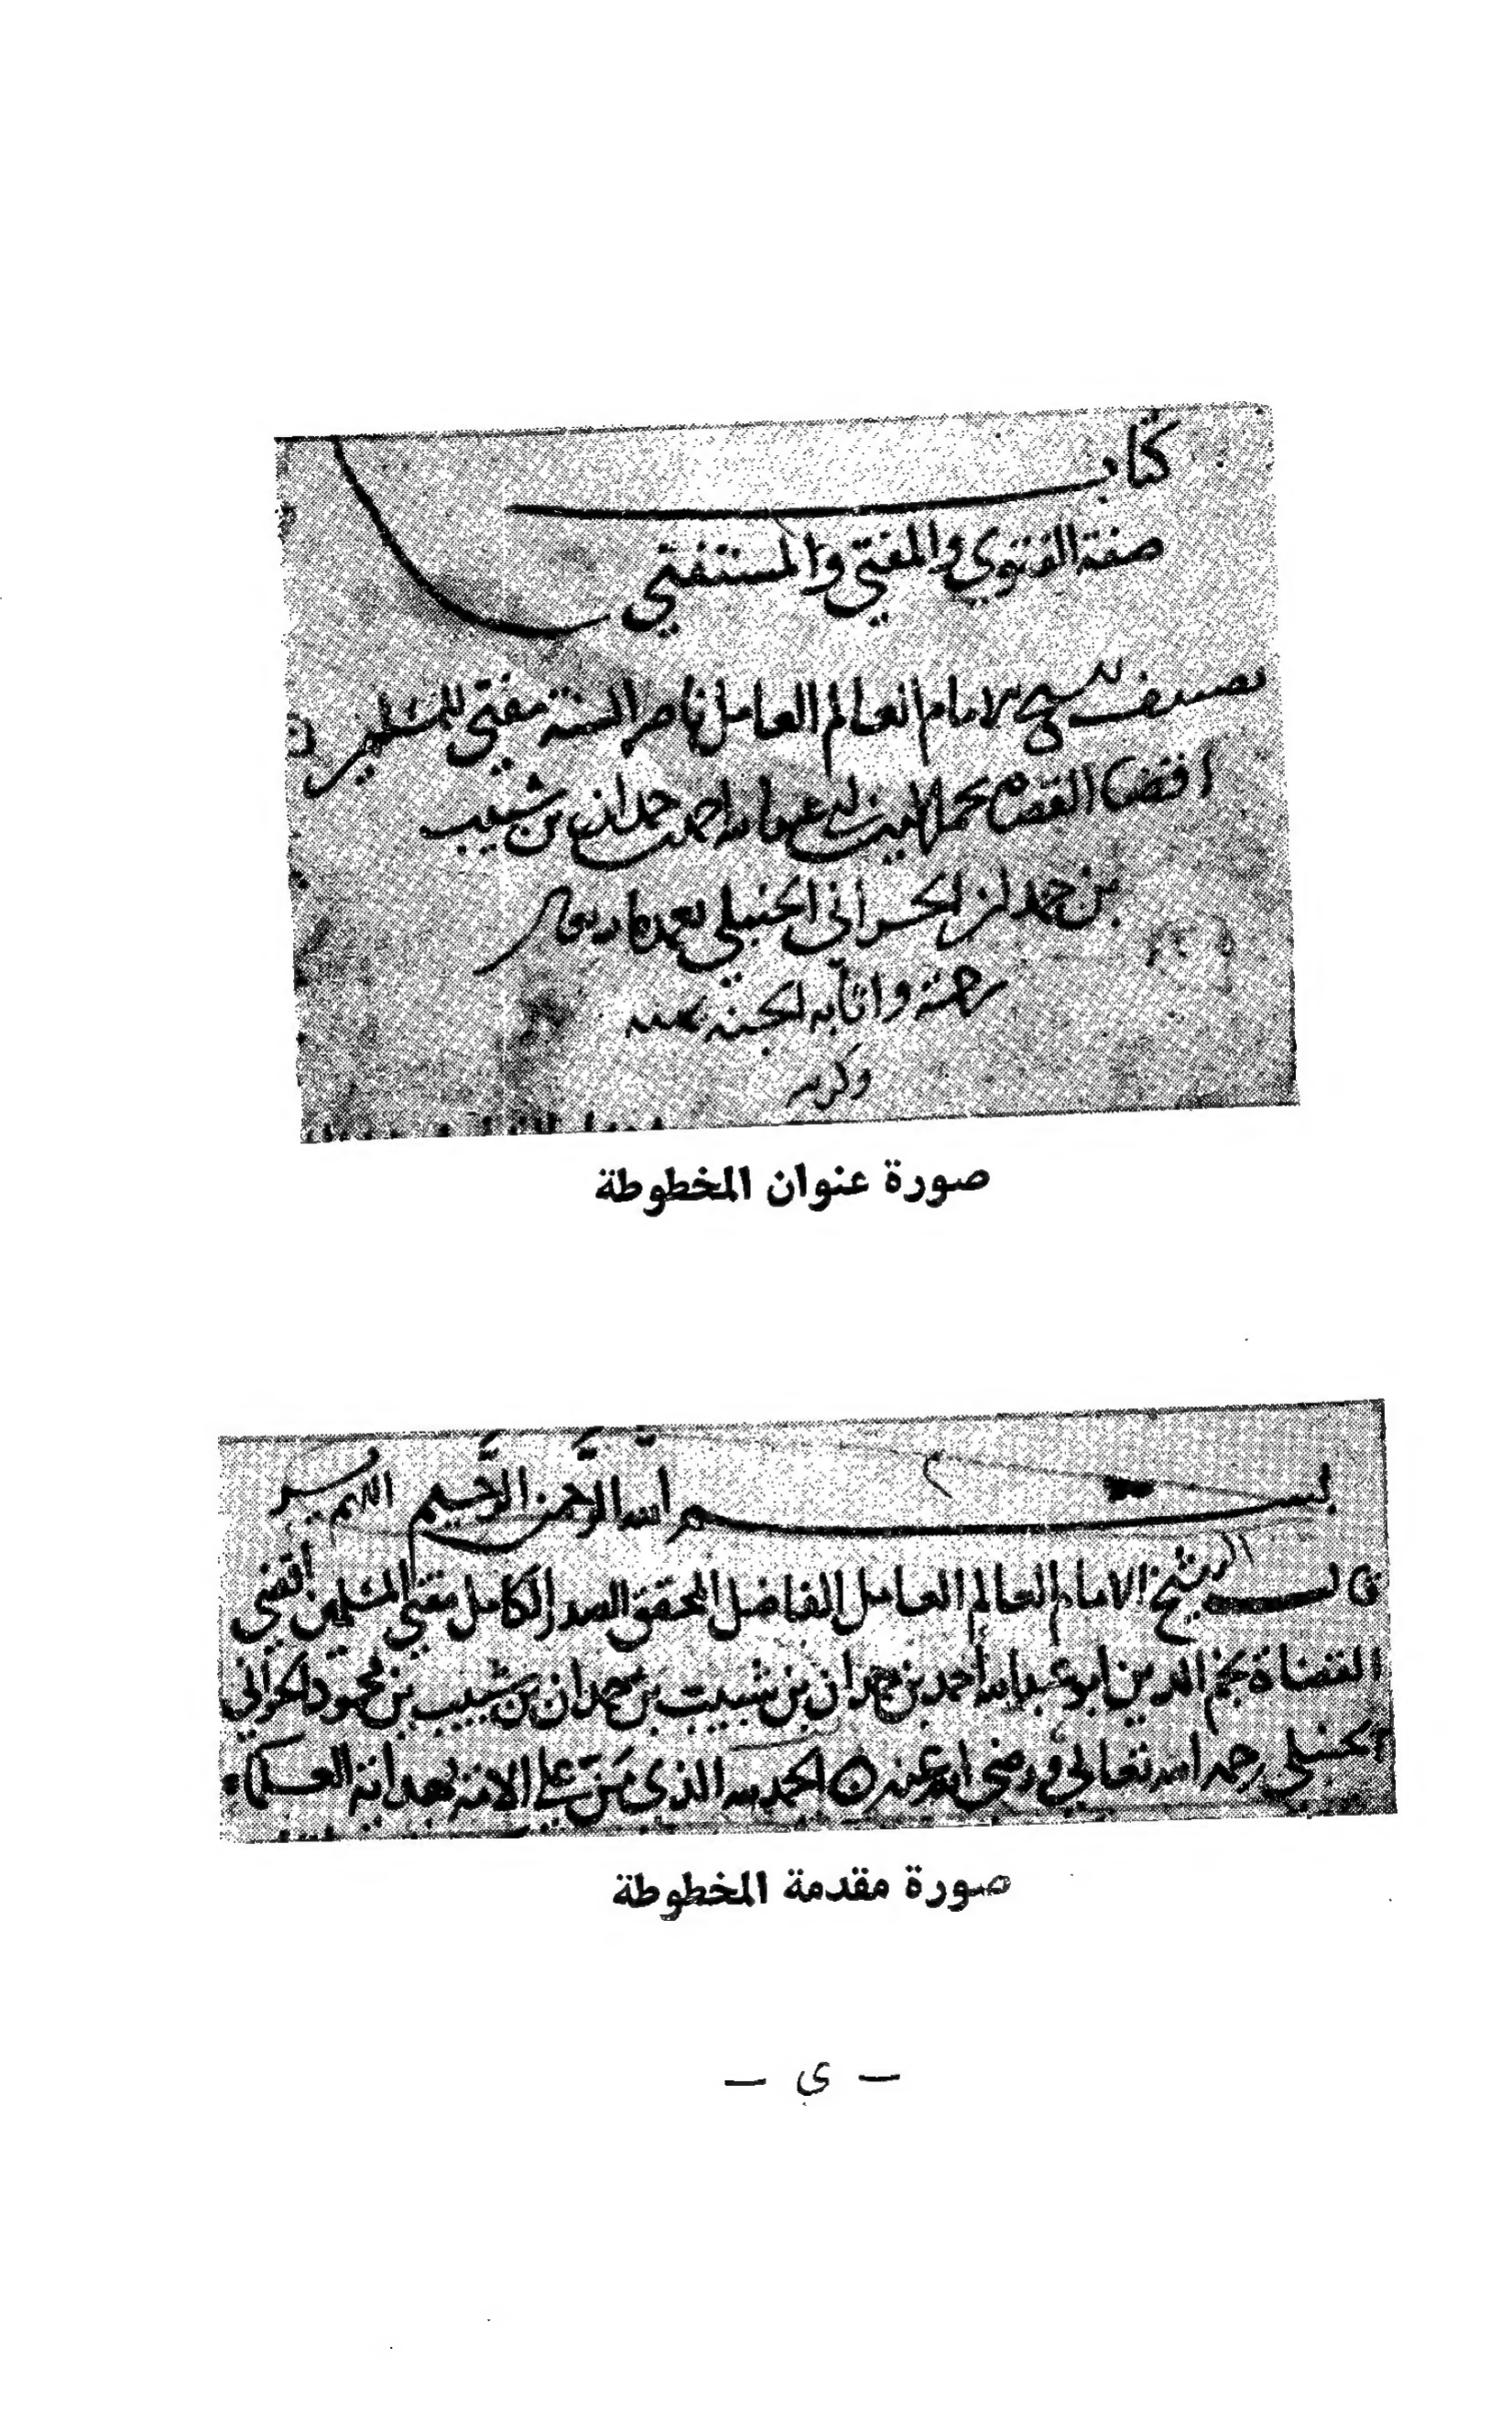 كتاب
صفة الفتوي والمفتي والمستفتي
تصنيف الشيخ الامام العالم العامل ناصر السنة مفتي المسلمين
اقضا القضاه نجم الدين ابي عبد الله احمد بن حمدان بن شبيب
بن حمدان الحراني الحنبلي تغمده الله تعالى
برحمته واثابه الجنة بمنه
وكرمه
صورة عنوان المخطوطة
بسم الله الرحمن الرحيم اللهم يسر
قال الشيخ الامام العالم العامل الفاضل المحقق الصدر الكامل مفتي المسلمين أقضي
القضاة نجم الدين ابو عبد الله أحمد بن حمدان بن شبيب بن حمدان بن شبيب بن محمود الحراني
الحنبلي رحمه الله تعالى ورضي الله عنه الحمد لله الذي منّ علي الامة بهداية العلماء
صورة مقدمة المخطوطة
— ي —